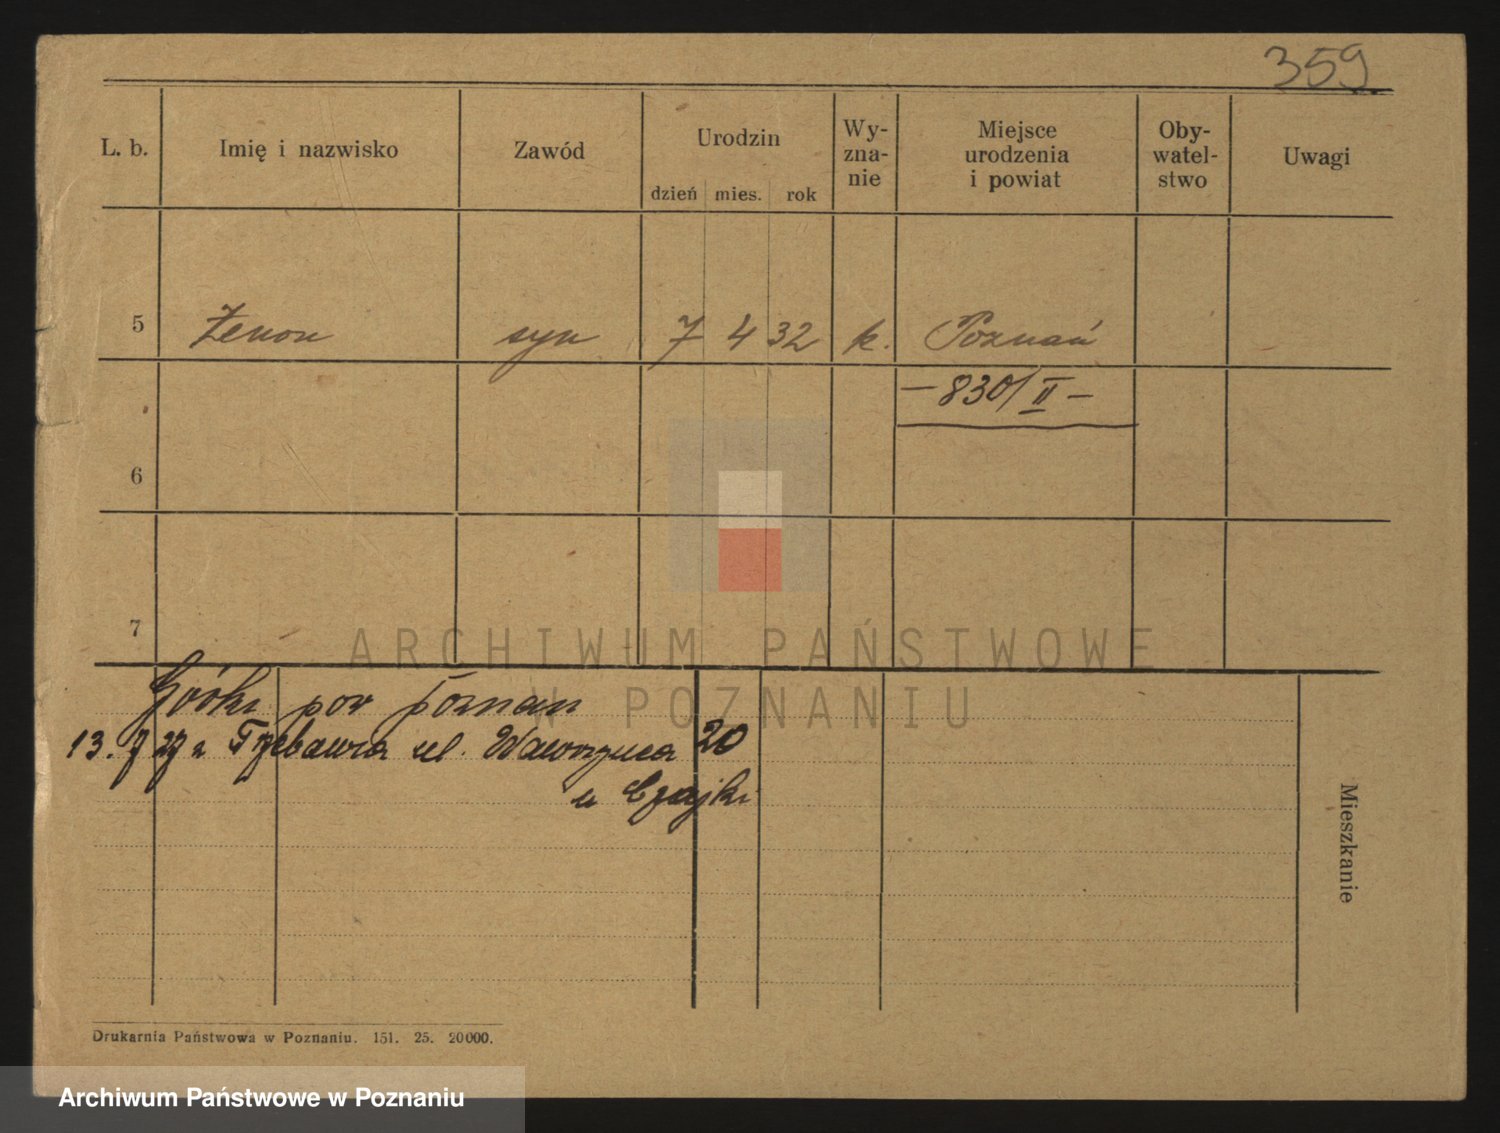 359.
L. b. Imię i nazwisko Zawód Urodzin Wy- zna- nie Miejsce urodzenia i powiat Oby- watel- stwo Uwagi
dzień mies. rok
5 Zenon syn 7 4 32 k. Poznań
— 830/II —
6
7
ARCHIWUM PAŃSTWOWE
W POZNANIU
pow Poznan
13. 7 27 z Trzebawia ul. Wawrzyńca 20
u Czajki
Mieszkanie
Drukarnia Państwowa w Poznaniu. 151. 25. 20000.
Archiwum Państwowe w Poznaniu